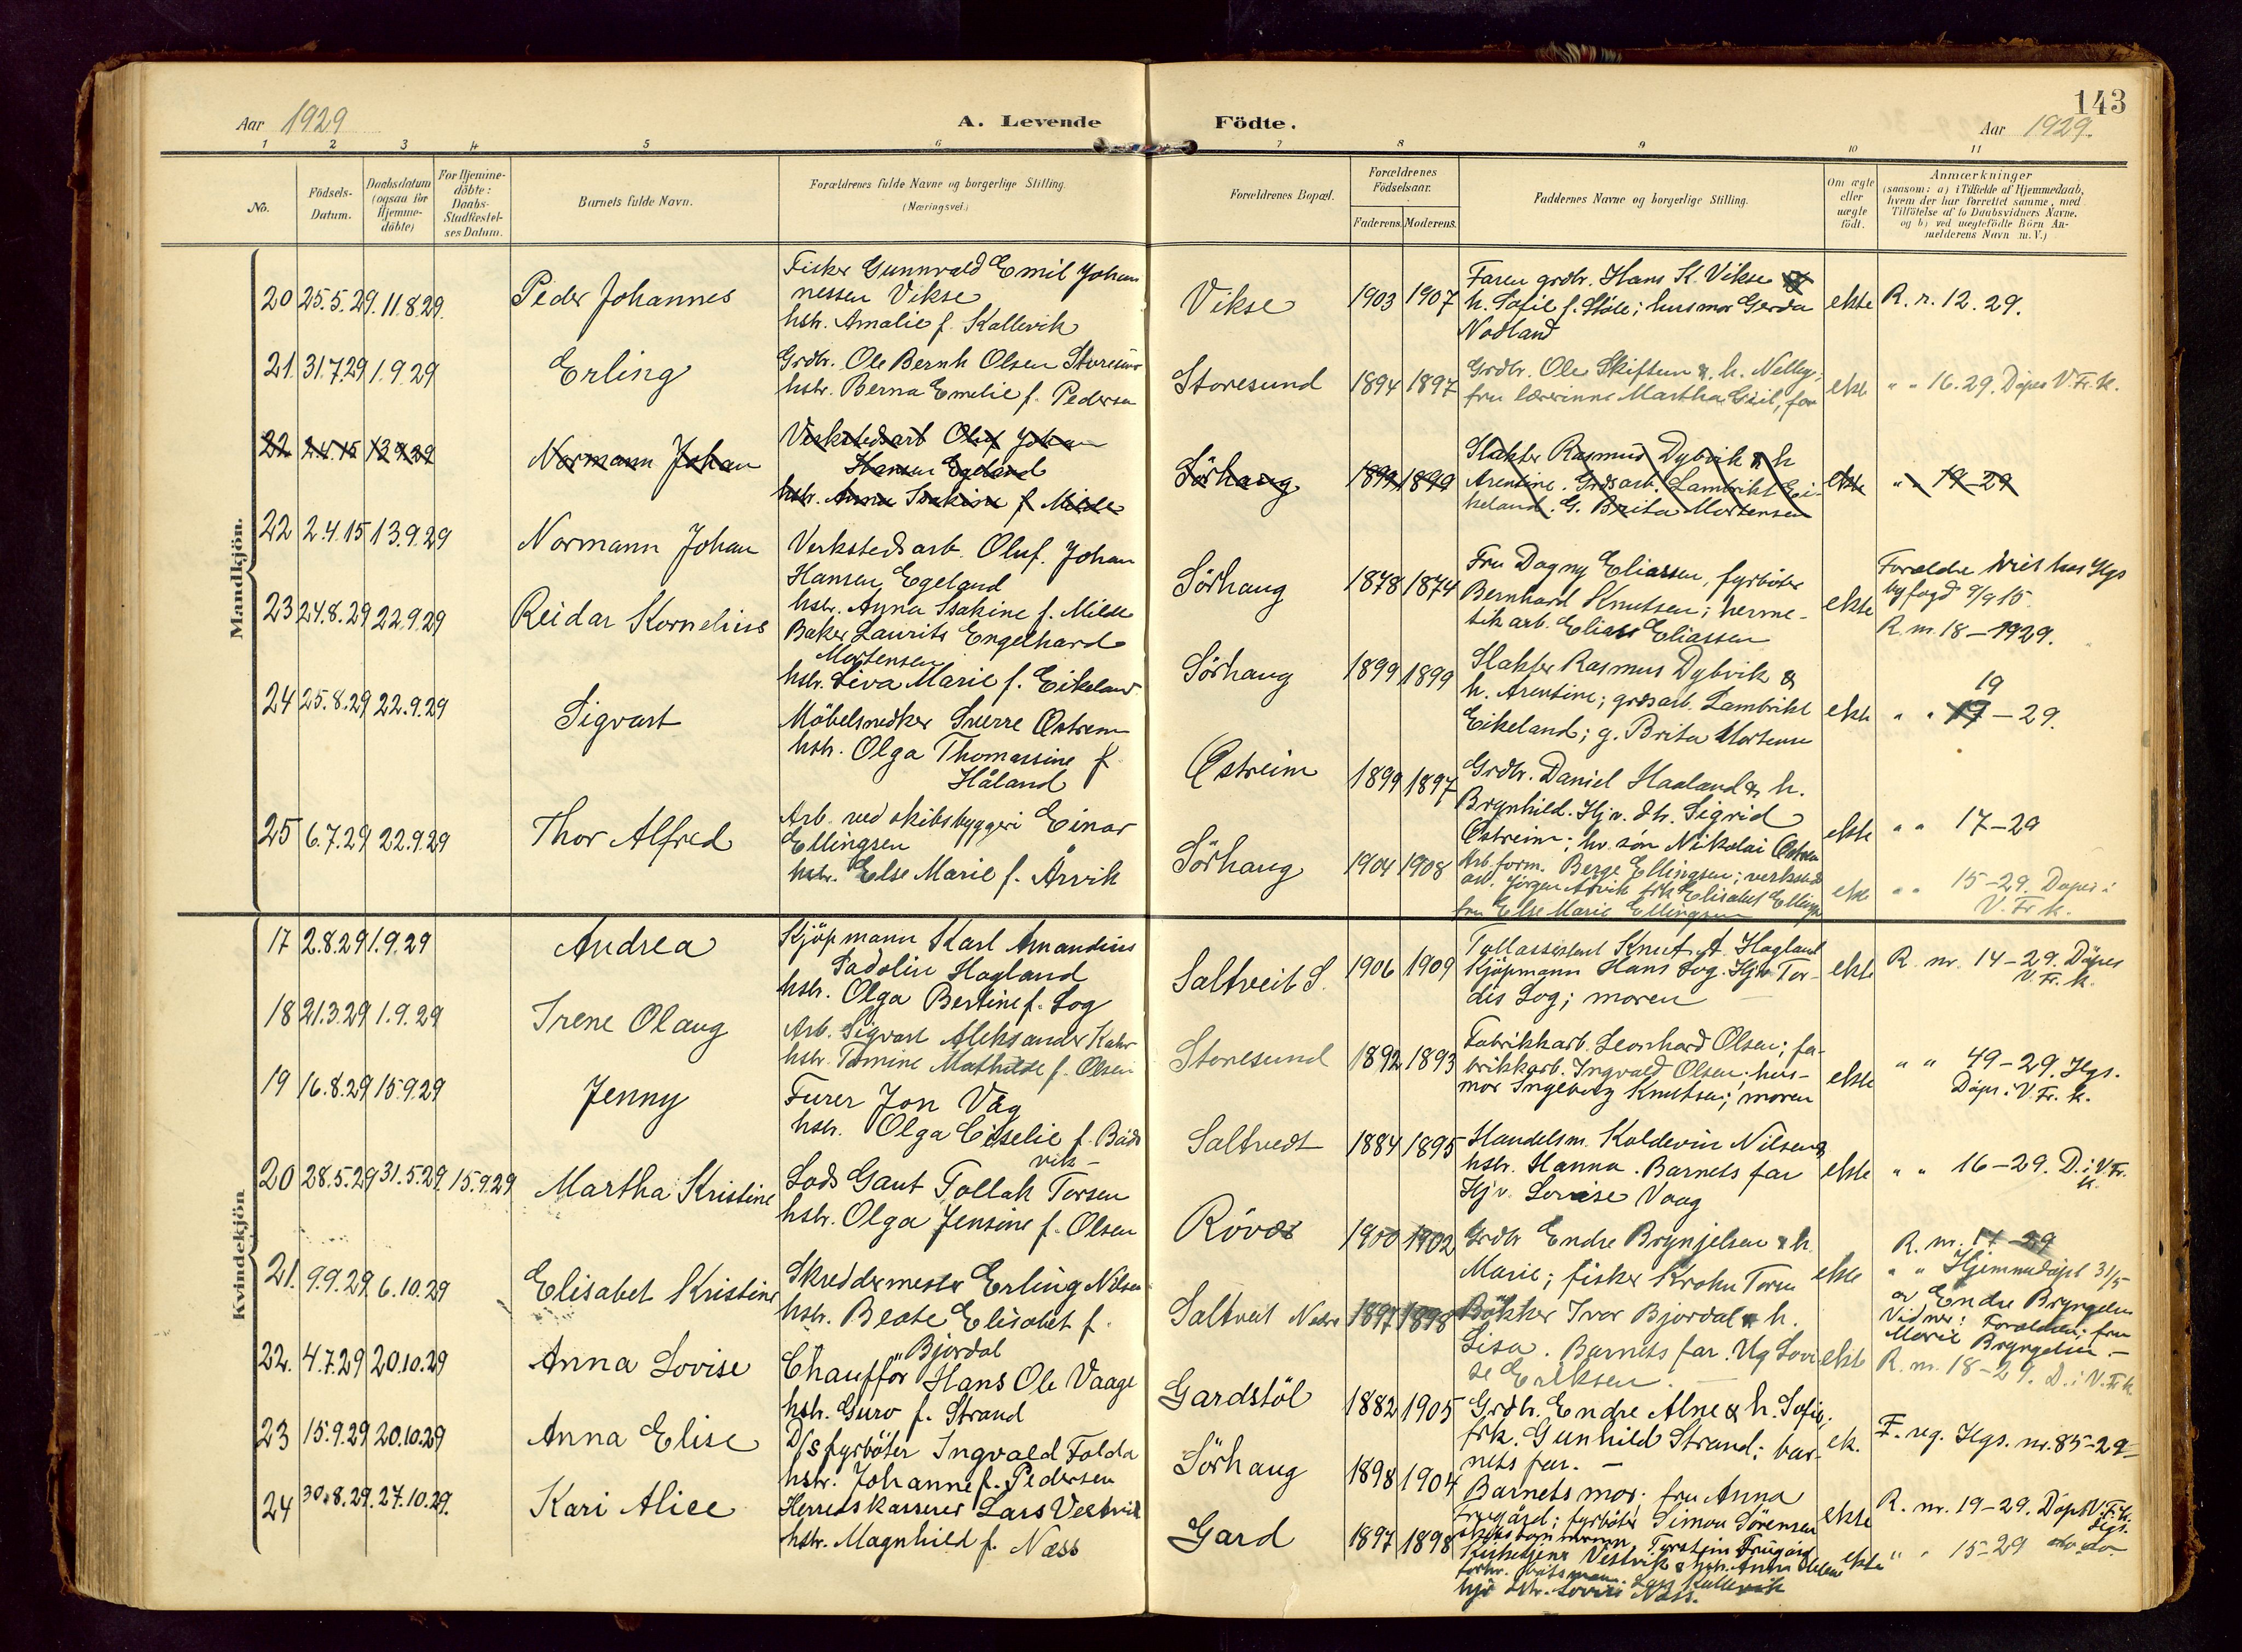 143
Aar 1929
A. Levende Födte.
Aar 1929.
1 2 3 4 5 6 7 8 9 10 11
No.
Födsels-Datum.
Daabsdatum (ogsaa for Hjemme-döbte)
For Hjemme-döbte: Daabs-Stadfæstel-ses Datum.
Barnets fulde Navn.
Forældrenes fulde Navne og borgerlige Stilling.
(Næringsvei.)
Forældrenes Bopæl.
Forældrenes Födselsaar.
Faderens. Moderens.
Faddernes Navne og borgerlige Stilling.
Om ægte eller uægte födt.
Anmærkninger
(saasom: a) i Tilfælde af Hjemmedaab,
hvem der har forrettet samme, med
Tilföielse af to Daabsvidners Navne.
og b) ved uægtefödte Börn An-
melderens Navn m. V.)
Mandkjön.
20 25.5.29. 11.8.29. Peder Johannes
Fisker Gunnvald Emil Johan
nessen Vikse
hstr. Amalie f. Kallevik
Vikse 1903 1907
Faren grdbr. Hans K. Vikse
h. Sofie f. Støle; husmor Gerda
Nodland
ekte R. n. 12. 29.
21. 31.7.29 1.9.29 Erling
Grdbr. Ole Bernh Olsen Storesund
hstr. Berna Emelie f. Pedersen
Storesund 1894 1897
Grdbr. Ole Skiftun & h. Nelly;
fru lærerinne Martha Eeil, far
ekte " " 16.29. Döpes V. Fr. k.
22 2.4.15 13.9.29 Normann Johan
Verkstedsarb Oluf Johan
Hansen Egeland
hstr. Anna Isakine f. Milde
Sörhaug 1899 1899
Slakter Rasmus Dybvik & h
Arentine. Grdsarb. Lambrikt Ei-
keland. G. Brita Mortensen
ekte " " 19-29
22 2.4.15 13.9.29 Normann Johan
Verkstedsarb. Oluf. Johan
Hansen Egeland
hstr. Anna Isakine f. Milde
Sörhaug 1878 1874
Fru Dagny Eliassen, fyrböter
Bernhard Knutsen; herme-
tikarb. Elias Eliassen
ekte
Forældre viet hos Hgs
byfogd 9/9 15.
R. nr. 18-1929.
23 24.8.29 22.9.29 Reidar Kornelius
Baker Laurits Engelhard
Mortensen
hstr. Siva Marie f. Eikeland
Sörhaug 1899 1899
Slakter Rasmus Dybvik &
h. Arentine; grdsarb. Lambrikt
Eikeland; g. Brita Mortensen
ekte " " 19 17-29.
24 25.8.29 22.9.29 Sigvart
Möbelsnedker Sverre Østrem
hstr. Olga Thomassine f.
Håland
Østreim 1899 1897
Grdbr. Daniel Haaland & h.
Brynhild. Hjv. dtr. Sigrid
Østreim; hv. sön Nikolai Østrem
ekte " " 17-29
25 6.7.29 22.9.29 Thor Alfred
Arb. ved skibsbyggeri Einar
Ellingsen
hstr. Else Marie f. Årvik
Sörhaug 1904 1908
Arb. form. Berge Ellingsen; verksted
arb. Jörgen Årvik frk Elisabet Ellingsen
fru Else Marie Ellingsen
ekte " " 15-29. Döpes i
V. Fr. k.
Kvindekjön
17 2.8.29 1.9.29 Andrea
Kjöpmann Karl Amandius
Sadolin Hagland
hstr. Olga Bertine f. Log
Saltveit S. 1906 1909
Tollassistent Knut A. Hagland
Kjöpmann Hans Log. Hjv. Tor-
dis Log; moren
ekte R. nr. 14-29. Döpes
V. Fr. k.
18 21.3.29 1.9.29 Irene Olaug
Arb. Sigvart Aleksander Kahr
hstr. Tomine Mathilde f. Olsen
Storesund 1892 1893
Fabrikkarb. Leonhard Olsen; fa-
brikkarb. Ingvald Olsen; hus-
mor Ingeborg Knutsen; moren
ekte " " 49-29. Hgs.
Döpes i V. Fr. k.
19 16.8.29 15.9.29 Jenny
Furer Jon Våg
hstr. Olga Ciselie f. Båds
vik-
Saltvedt 1884 1895
Handelsm. Koldevin Nilsen &
hstr. Hanna. Barnets far
Hjv. Lovise Vaag
ekte " " 16-29. D. i V. Fr.
k.
20 28.5.29 31.5.29. 15.9.29 Martha Kristine
Lods Gaut Tollak Torsen
hstr. Olga Jensine f. Olsen
Rövær 1900 1902
Grdbr Endre Brynjelsen & h.
Marie; fisker Krohn Torsen
ekte R. nr. 11-29
" " Hjemmedöpt 31/5
av Endre Bryngelsen
Vidner: Foreldrene; fru
Marie Bryngelsen.-
21. 9.9.29 6.10.29 Elisabet Kristine
Skreddermester Erling Nilsen
hstr. Beate Elisabet f.
Bjordal
Saltveit Nedre 1897 1898
Bökker Ivar Bjordal & h.
Lisa. Barnets far. Ug Lovi
se Eriksen.
ekte R. nr. 18-29. D. i V. Fr k
22. 4.7.29 20.10.29 Anna Lovise
Chaufför Hans Ole Vaage
hstr. Guro f. Strand
Gardstöl 1882 1905
Grdbr. Endre Alne & h. Sofie;
frk. Gunhild Strand; bar-
nets far.-
ek. F. reg. Hgs. nr. 85-29
23 15.9.29 20.10.29 Anna Elise
D/S fyrböter Ingvald Folda
hstr. Johanne f. Pedersen
Sörhaug 1898 1904
Barnets mor; fru Anna
Frugård; fyrböter Simon Sörensen
Torstein Frugård
ekte R. nr. 19-29. Döpt V. Fr. k.
Hgs.
24 30.8.29. 27.10.29. Kari Alice
Herredskasserer Lars Vestvik
hstr. Magnhild f. Næss
Gard 1897 1898
Vestvik & hstr. Anna Helene
Lars Kallevik
hjv dtr. Lovise Næss.
ekte " " 15-29 do. do.